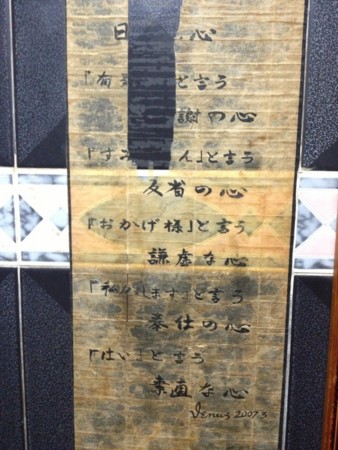 日 心
『有 と言う
謝の心
『すみ ん』と言う
反省の心
『おかげ様』と言う
謙虚な心
『私がします』と言う
奉仕の心
『はい』と言う
素直な心
Venus 2007.3